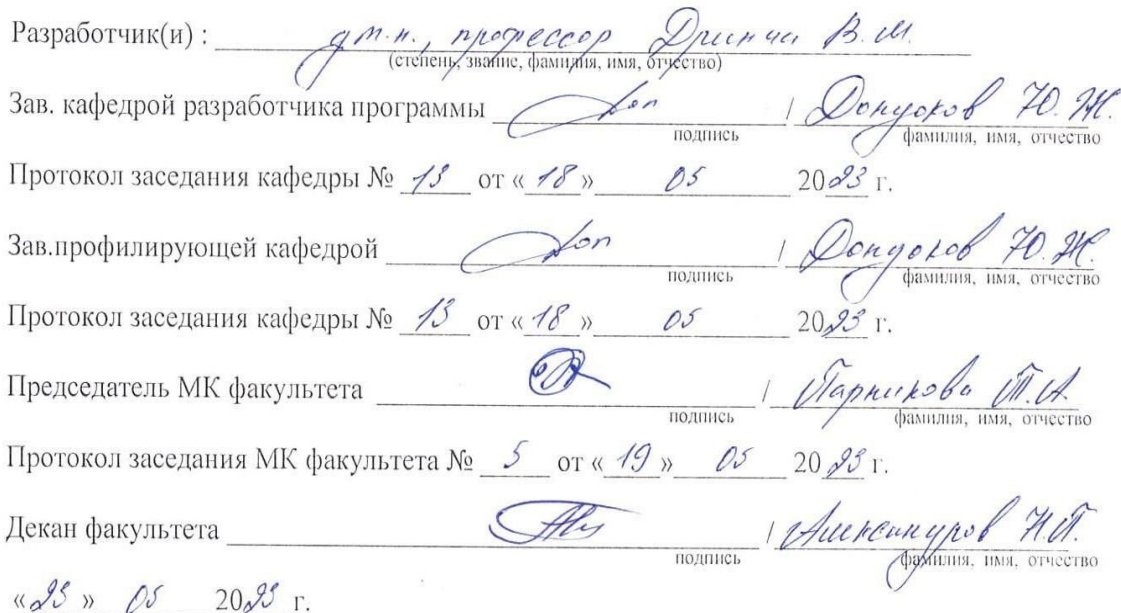 Разработчик(и) : д.т.н., профессор Дринча В.М.
(степень, звание, фамилия, имя, отчество)
Зав. кафедрой разработчика программы / Дондоков Ю.Ж.
подпись фамилия, имя, отчество
Протокол заседания кафедры № 13 от « 18 » 05 2023 г.
Зав.профилирующей кафедрой / Дондоков Ю.Ж.
подпись фамилия, имя, отчество
Протокол заседания кафедры № 13 от « 18 » 05 2023 г.
Председатель МК факультета / Парникова Т.А.
подпись фамилия, имя, отчество
Протокол заседания МК факультета № 5 от « 19 » 05 2023 г.
Декан факультета / Александров Н.П.
подпись фамилия, имя, отчество
« 23 » 05 2023 г.